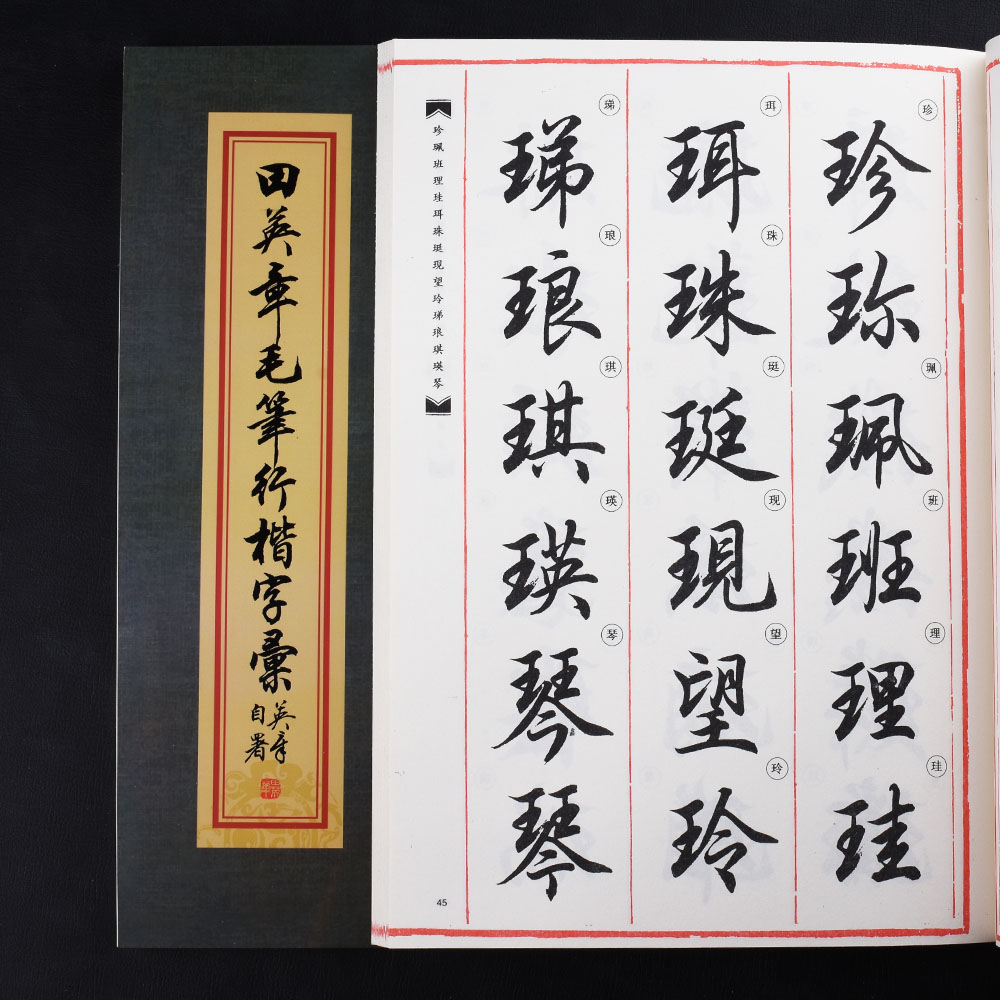 田英章毛筆行楷字彙
英章
自署
珍珮班理珪珥珠珽现望玲珶琅琪瑛琴
珍珮班理珪
珍珎珮班理珪
珥珠珽现望玲
珥珠珽現望玲
珶琅琪瑛琴
珶琅琪瑛琴琴
45